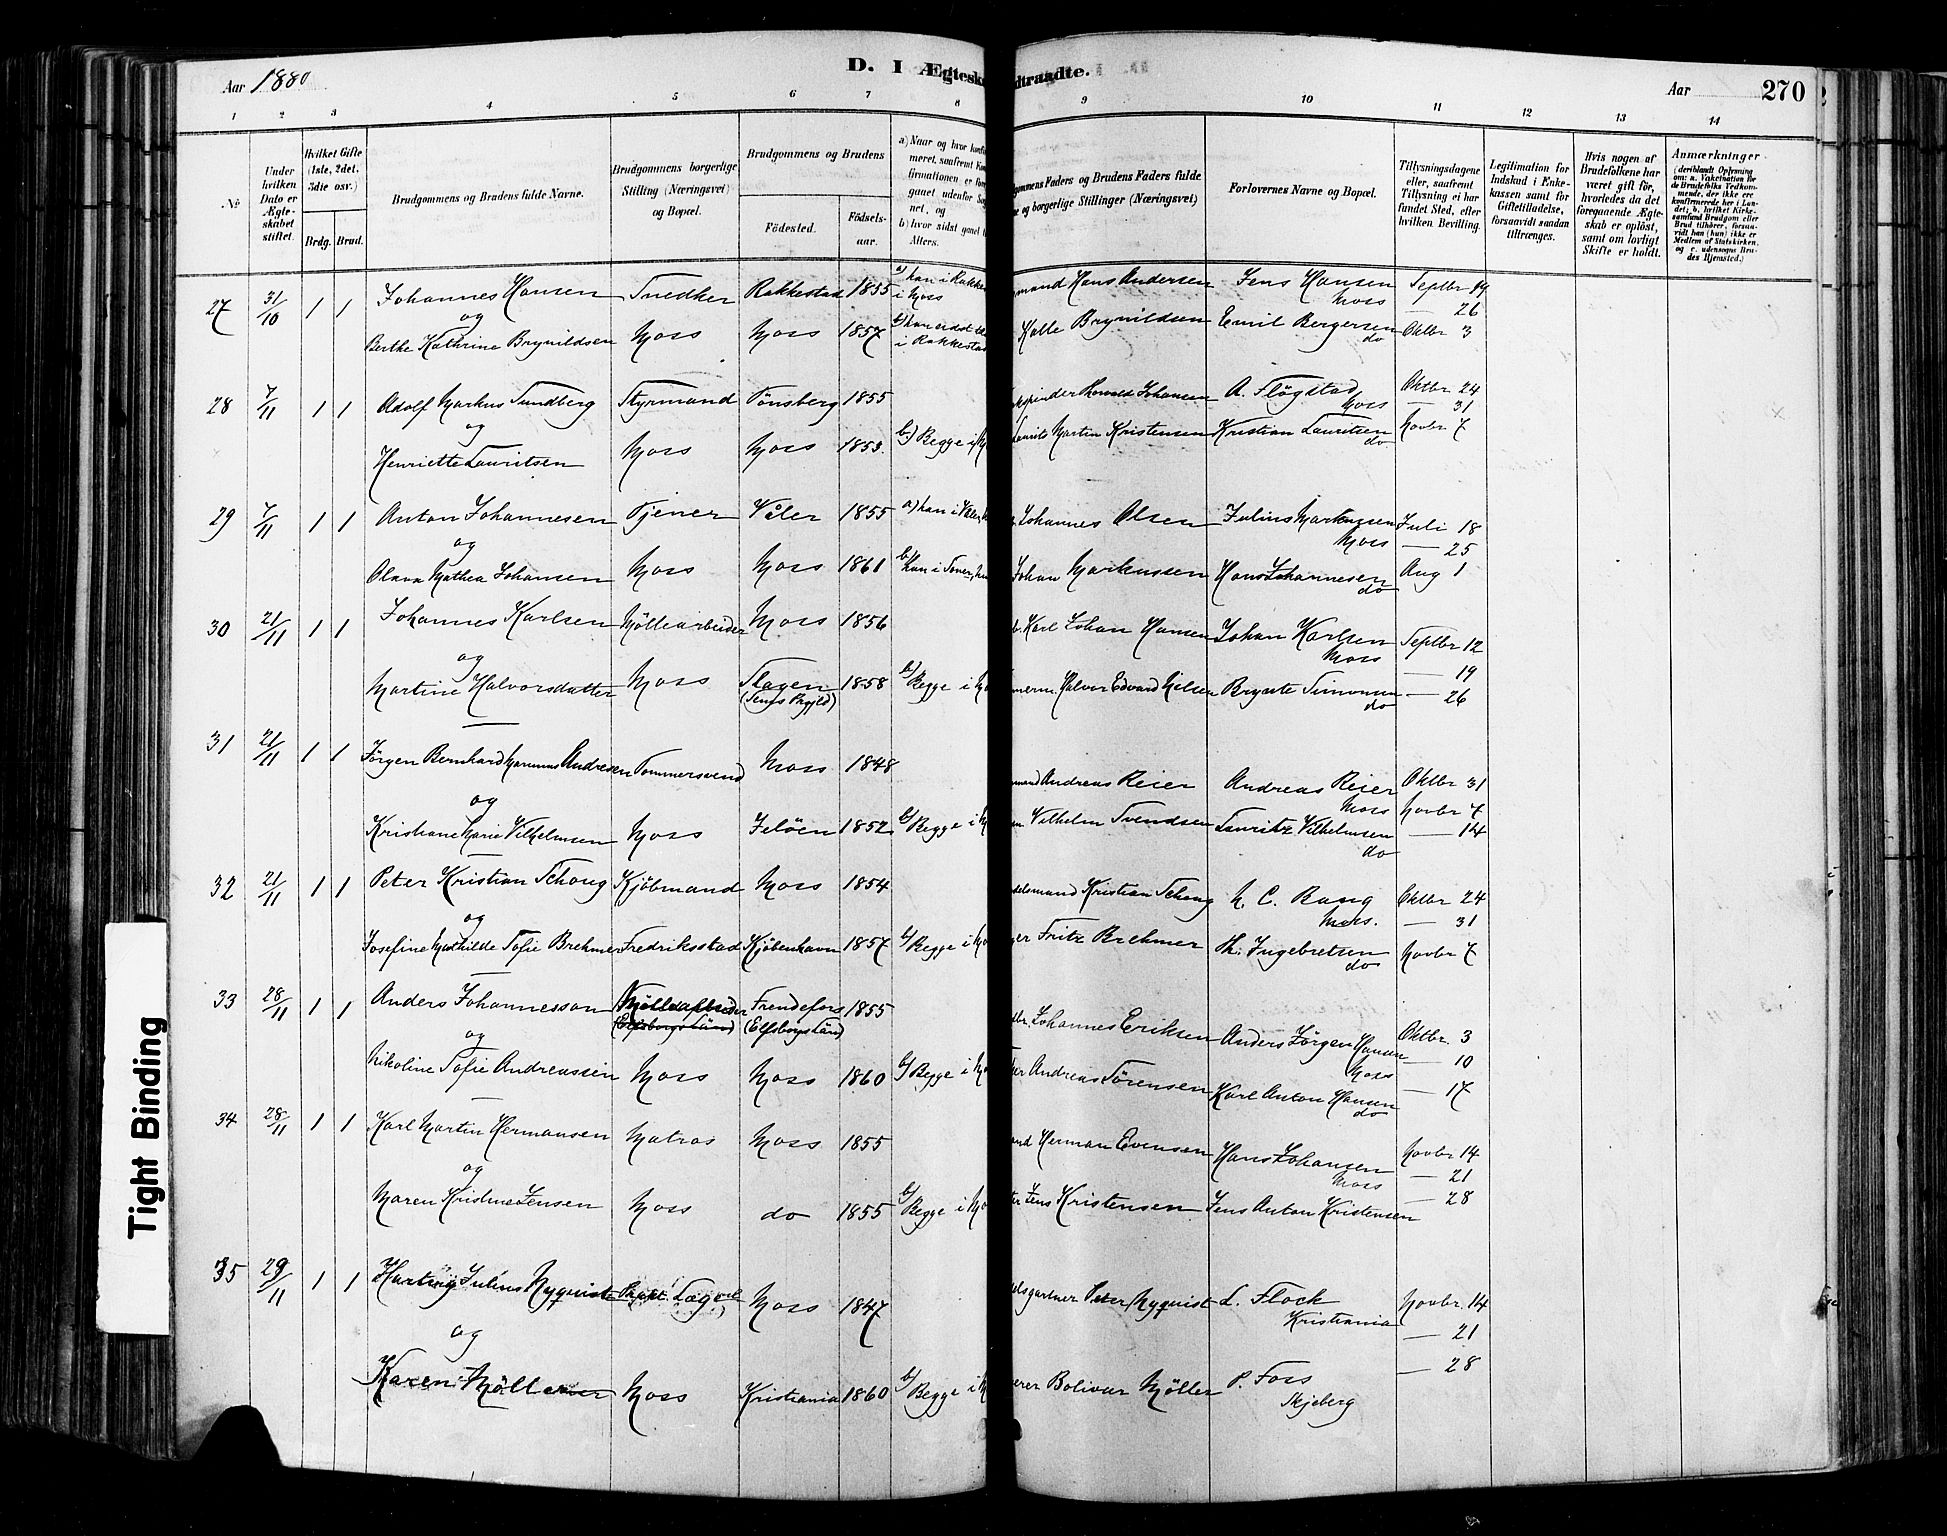 Aar 1880
D. I Ægtesk
dtraadte.
Aar
270
1 2 3 4 5 6 7 8 9 10 11 12 13 14
No
Under hvilken Dato er Ægteskabet stiftet.
Hvilket Gifte (1ste, 2det, 3die osv.)
Brdg. Brud.
Brudgommens og Brudens fulde Navne.
Brudgommens borgerlige Stilling (Næringsvei) og Bopæl.
Brudgommens og Brudens
Fødested.
Fødsels-aar.
a) Naar og hvor konfi
meret, saafremt Kon
firmationen er fore
gaaet udenfor Sog
net, og
b) hvor sidst gaaet t
Alters.
gommens Faders og Brudens Faders fulde
ne og borgerlige Stillinger (Næringsvei)
Forlovernes Navne og Bopæl.
Tillysningsdagene eller, saafremt Tillysning ei har fundet Sted, efter hvilken Bevilling.
Legitimation for Indskud i Enkekassen samt for Giftetilladelse, forsaavidt saadan tiltrænges.
Hvis nogen af Brudefolkene har været gift før, hvorledes da det foregaaende Ægteskab er opløst, samt om lovligt Skifte er holdt.
Anmærkninger
(deriblandt Oplysning om: a. Vakcination for de Brudefolks Vedkommende, der ikke er konfirmerede her i Landet; b. hvilket Kirkesamfund Brudgom eller Brud tilhører, forsaavidt han (hun) ikke er Medlem af Statskirken, og c. udensogns Brudes Hjemsted.)
27 31/10 1 1 Johannes Hansen Snedker Rakkestad 1855 a) han i Rakke
i Moss
mand Hans Andersen Jens Hansen Septbr 19
Moss — 26
og
Berthe Kathrine Brynildsen Moss Moss 1857 b) han sidst
i Rakkestad
Kalle Brynildsen Emil Bergersen Oktbr 3
do
28 7/11 1 1 Adolf Markus Sundberg Styrmand Tønsberg 1855
Johansen A. Fløgstad Oktbr 24
Moss — 31
og
Henriette Lauritsen Moss Moss 1853. b) Begge i M
Laurits Martin Kristensen Kristian Lauritsen Novbr 7
do
29 7/11 1 1 Anton Johannesen Tjener Våler 1855 a) han i Våler
Johannes Olsen Julius Markussen Juli 18
Moss — 25
og
Olava Mathea Johansen Moss Moss 1861 b) han i
Johan Markussen Hans Johannesen Aug 1
do
30 21/11 1 1 Johannes Karlsen Møllearbeider Moss 1856
b. Karl Johan Hansen Johan Karlsen Septbr 12
Moss — 19
og
Martine Halvorsdatter Moss Slagen 1858 b) Begge i Mo
merm. Halvor Edvard Nilsen Brynte Simonsen — 26
do
31 21/11 1 1 Jørgen Bernhard Marinus Andresen Tømmersvend Moss 1848
mand Andreas Reier Andreas Reier Oktbr 31
Moss Novbr 7
og
Kristiane Marie Vilhelmsen Moss Jeløen 1852 b) Begge i M
en Vilhelm Svendsen Lauritz Vilhelmsen — 14
do
32 21/11 1 1 Peter Kristian Schong Kjøbmand Moss 1854
delsmand Kristian Schong N. C. Rang Oktbr 24
Moss. — 31
og
Josefine Mathilde Sofie Brehmer Fredriksstad Kjøbenhavn 1857 b) Begge i Mo
ger Fritz Brehmer Th. Ingebretsen Novbr 7
do
33 28/11 1 1 Anders Johannesson Møllearbeider Frendefors 1855
(Elfsborgs Län) (Elfsborgs Län)
db. Johannes Eriksen Anders Jørgen Hansen Oktbr. 3
Moss — 10
og
Nikoline Sofie Andreassen Moss Moss 1860 b) Begge i Mo
ker Andreas Sørensen Karl Anton Hansen — 17
do
34 28/11 1 1 Karl Martin Hermansen Matros Moss 1855
and Herman Evensen Hans Johansen Novbr 14
Moss — 21
og
Maren Kristine Jensen Moss do 1855 b) Begge i Mo
ter Jens Kristensen Jens Anton Kristensen — 28
35 29/11 1 1 Hartvig Julius Nyquist Læge Moss 1847
delsgartner Peter Nyquist L. Flock Novbr 14
Kristiania — 21
og
Karen Møller Moss Kristiania 1860 b) Begge i M
erer Bolivar Møller P. Foss — 28
Skjeberg
Tight Binding